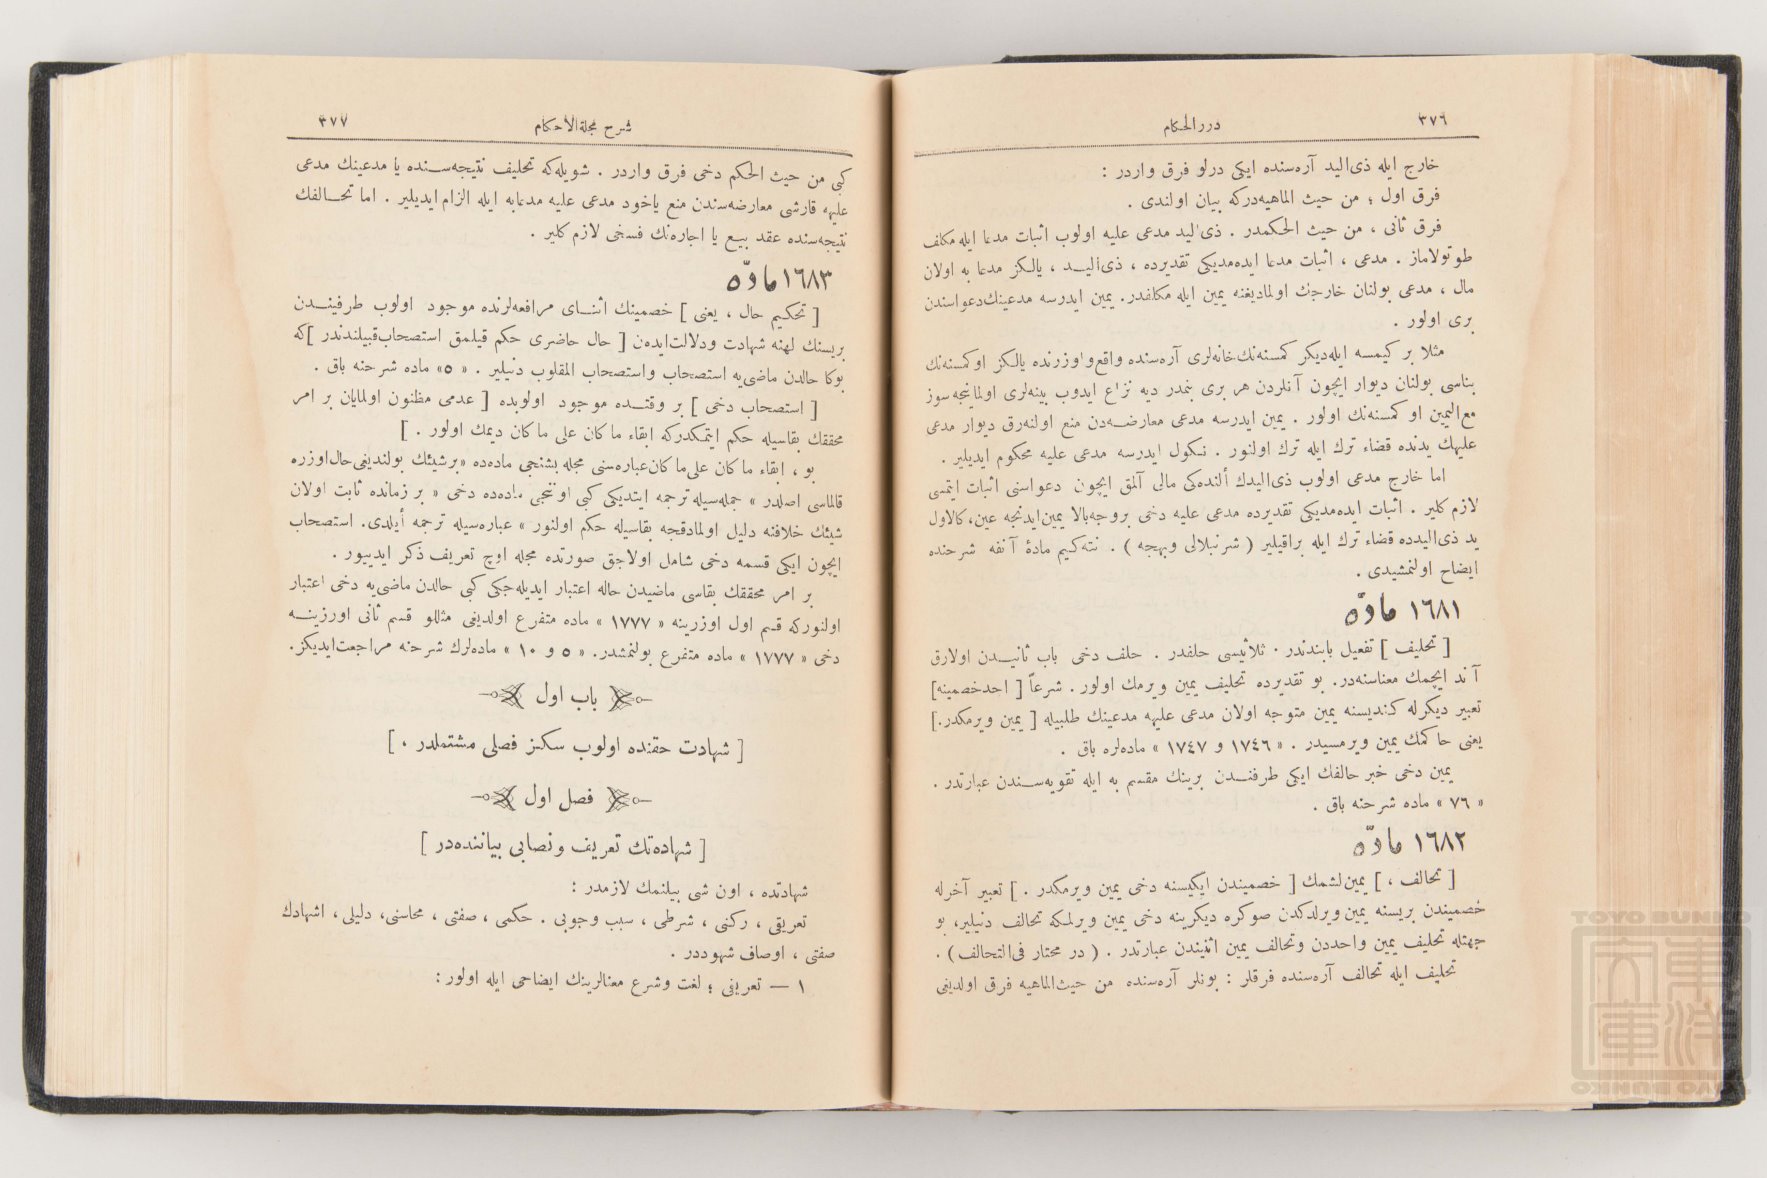 ٣٧٦
دررالحكام
خارج ايله ذى‌اليد آره‌سنده ايكى درلو فرق واردر :
فرق اول ؛ من حيث الماهيه‌دركه بيان اولندى .
فرق ثانى ، من حيث الحكمدر . ذى‌اليد مدعى عليه اولوب اثبات مدعا ايله مكلف
طوتولاماز . مدعى ، اثبات مدعا ايده‌مديكى تقديرده ، ذى‌اليــد ، يالكز مدعا به اولان
مال ، مدعى بولنان خارجك اولماديغنه يمين ايله مكلفدر. يمين ايدرسه مدعينك دعواسندن
برى اولور .
مثلا بر كيمسه ايله‌ديكر كمسنه‌نك‌خانه‌لرى آره‌سنده واقع‌و اوزرنده يالكز اوكمسنه‌نك
بناسى بولنان ديوار ايچون آنلردن هر برى بنمدر ديه نزاع ايدوب بينه‌لرى اولماينجه سوز
مع‌اليمين او كمسنه‌نك اولور . يمين ايدرسه مدعى معارضـه‌دن منع اولنه‌رق ديوار مدعى
عليهك يدنده قضاء ترك ايله ترك اولنور . نكول ايدرسه مدعى عليه محكوم ايديلير .
اما خارج مدعى اولوب ذى‌اليدك ألنده‌كى مالى آلمق ايچون دعواسنى اثبات ايتمسى
لازم كلير . اثبات ايده‌مديكى تقديرده مدعى عليه دخى بروجه‌بالا يمين‌ايدنجه عين، كالاول
يد ذى‌اليدده قضاء ترك ايله براقيلير ( شرنبلالى وبهجه ) . نته‌كيم مادۀ آنفه شرحنده
ايضاح اولنمشيدى .
١٦٨١ مادّه
[ تحليف ] تفعيل بابندندر . ثلاثيسى حلفدر . حلف دخى باب ثانيــدن اولارق
آند ايچمك معناسنه‌در. بو تقديرده تحليف يمين ويرمك اولور . شرعاً [ احدخصمينه]
تعبير ديكرله كنديسنه يمين متوجه اولان مدعى عليهه مدعينك طلبيله [ يمين ويرمكدر.]
يعنى حاكمك يمين ويرمسيدر . « ١٧٤٦ و ١٧٤٧ » ماده‌لره باق .
يمين دخى خبر حالفك ايكى طرفنــدن برينك مقسم به ايله تقويه‌ســندن عبارتدر .
« ٧٦ » ماده شرحنه باق .
١٦٨٢ مادّه
[ تحالف ، ] يمين‌لشمك [ خصميندن ايكيسنه دخى يمين ويرمكدر . ] تعبير آخرله
خصميندن بريسنه يمين ويرلدكدن صوكره ديكرينه دخى يمين ويرلمكه تحالف دنيلير، بو
جهتله تحليف يمين واحددن وتحالف يمين اثنيندن عبارتدر . ( در مختار فى‌التحالف ) .
تحليف ايله تحالف آره‌سنده فرقلر : بونلر آره‌سنده من حيث‌الماهيه فرق اولديغى
٣٧٧
شرح مجلة‌الاحكام
كبى من حيث الحكم دخى فرق واردر . شويله‌كه تحليف نتيجه‌سـنده يا مدعينك مدعى
عليهه قارشى معارضه‌سندن منع ياخود مدعى عليه مدعابه ايله الزام ايديلير . اما تحــالفك
نتيجه‌سنده عقد بيــع يا اجاره‌نك فسخى لازم كلير .
١٦٨٣ مادّه
[ تحكيم حال ، يعنى ] خصمينك اثنــاى مرافعه‌لرنده موجود اولوب طرفينــدن
بريسنك لهنه شهادت ودلالت‌ايدەن [ حال حاضرى حكم قيلمق استصحاب‌قبيلندندر ]كه
بوكا حالدن ماضى‌يه استصحاب واستصحاب المقلوب دنيلير . « ٥» ماده شرحنه باق .
[ استصحاب دخى ] بر وقتــده موجود اولوبده [ عدمى مظنون اولمايان بر امر
محققك بقاسيله حكم ايتمكدركه ابقاء ماكان على ماكان ديمك اولور . ]
بو ، ابقاء ما كان على‌ماكان‌عباره‌سنى مجله بشنجى ماده‌ده «برشيئك بولنديغى‌حال‌اوزره
قالماسى اصلدر » جمله‌سيله ترجمه ايتديكى كبى اوننجى ماده‌ده دخى « بر زمانده ثابت اولان
شيئك خلافنه دليل اولمادقجه بقاسيله حكم اولنور » عباره‌سيله ترجمه أيلدى. استصحاب
ايچون ايكى قسمه دخى شامل اولاجق صورتده مجله اوچ تعريف ذكر ايدييور .
بر امر محققك بقاسى ماضيدن حاله اعتبار ايديله‌جكى كبى حالدن ماضى‌يه دخى اعتبار
اولنوركه قسم اول اوزرينه « ١٧٧٧ » ماده متفرع اولديغى مثللو قسم ثانى اورزينــه
دخى « ١٧٧٧ » ماده متفرع بولنمشدر. « ٥ و ١٠ » ماده‌لرك شرحنه مراجعت‌ايديكز.
باب اول
[ شهادت حقنده اولوب سكز فصلى مشتملدر ، ]
فصل اول
[ شهاده‌تك تعريف ونصابى بياننده‌در ]
شهادتده ، اون شى بيلنمك لازمدر :
تعريقى ، ركنى ، شرطى ، سبب وجوبى . حكمى ، صفتى ، محاسنى، دليلى ، اشهادك
صفتى ، اوصاف شهوددر .
١ — تعريفى ؛ لغت وشرع معنالرينك ايضاحى ايله اولور :
TOYO BUNKO
東洋文庫
TOYO BUNKO